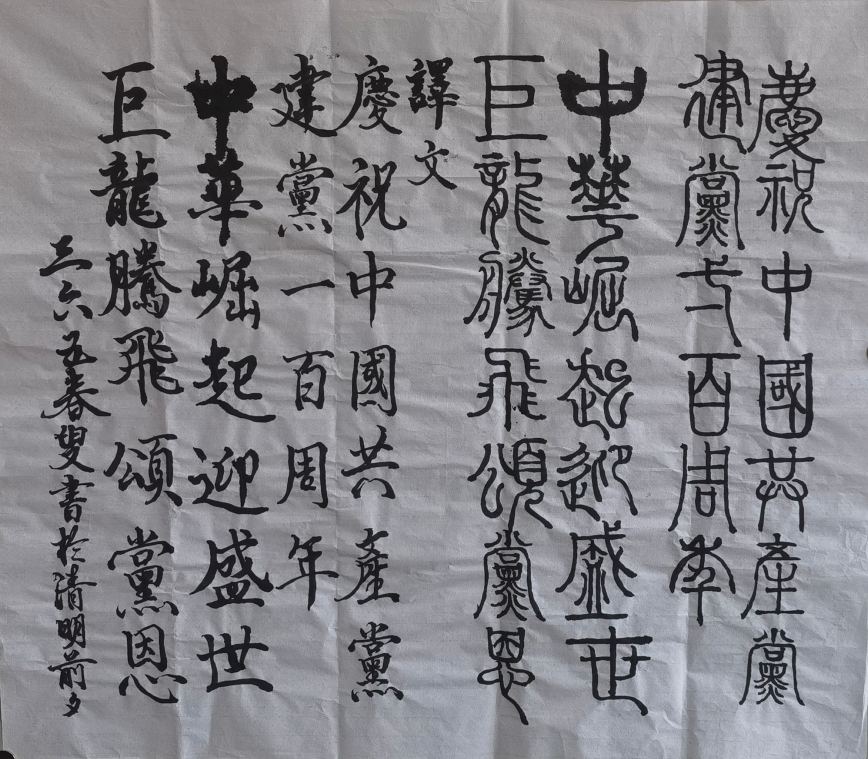 慶祝中國共產黨
建黨弌百周年
中華崛起迎盛世
巨龍騰飛頌黨恩
譯文
慶祝中國共產黨
建黨一百周年
中華崛起迎盛世
巨龍騰飛頌黨恩
三六五春叟書於清明前夕